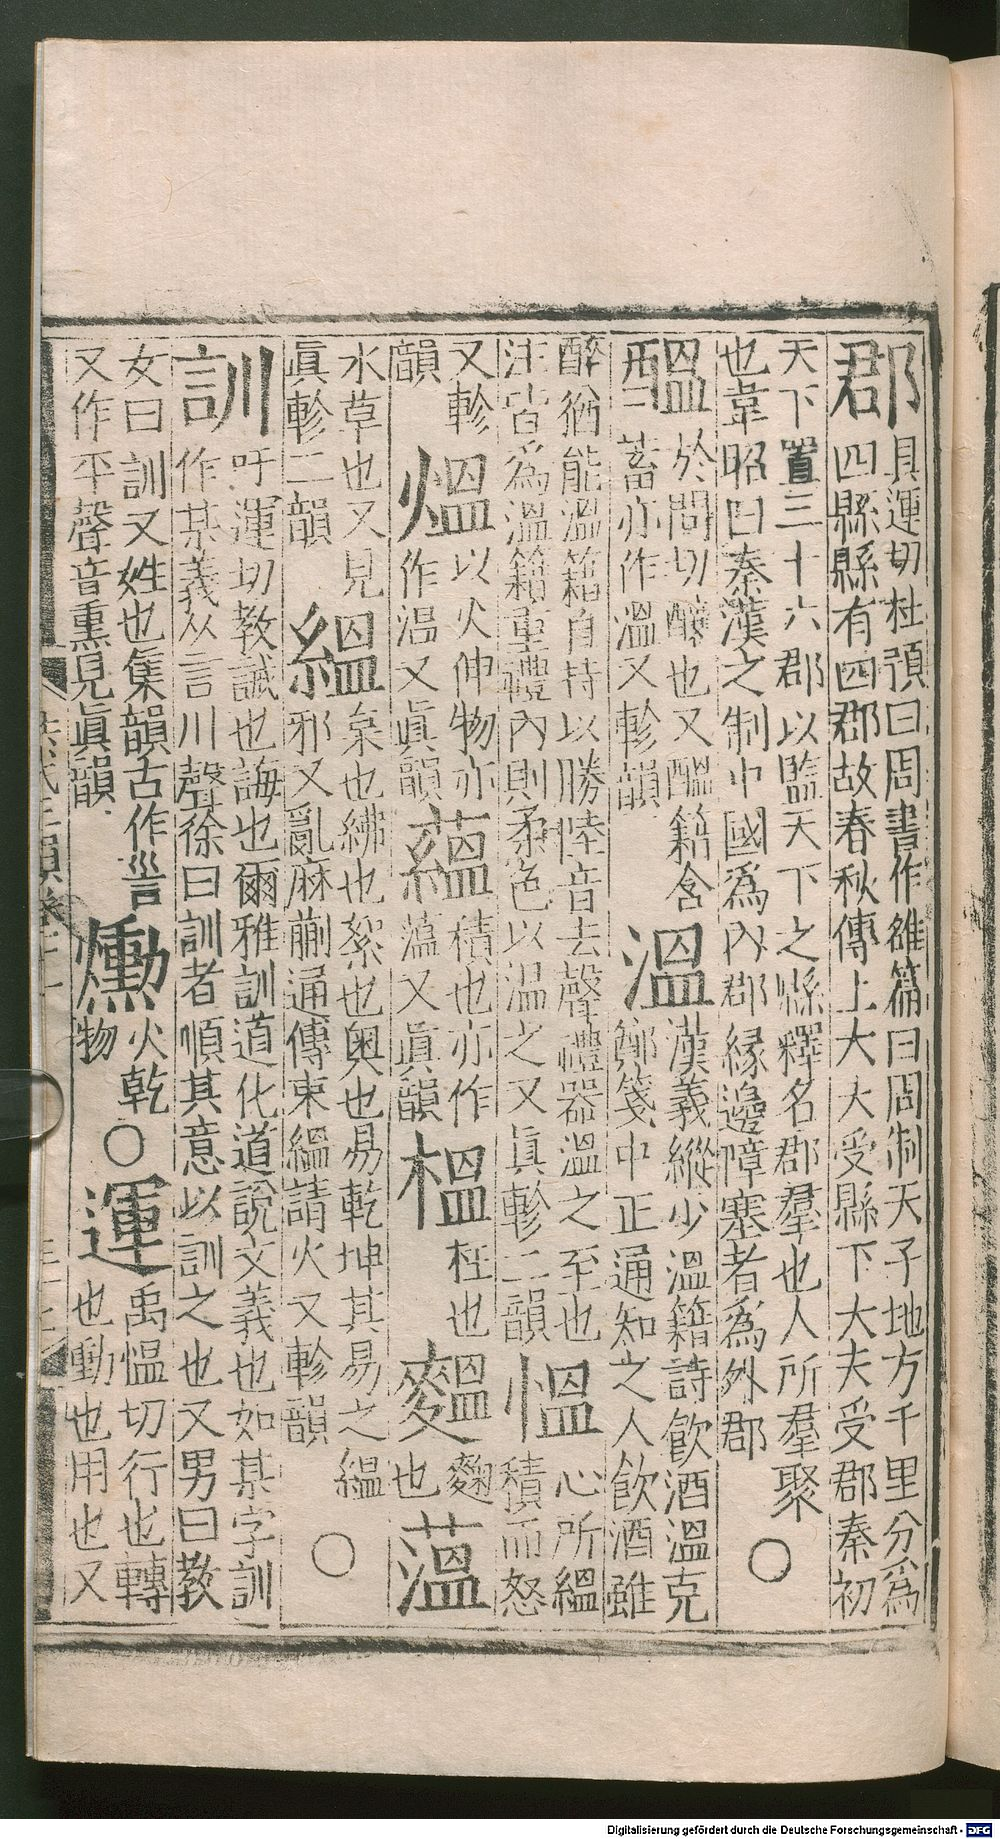 郡具運切杜預曰周書作雒篇曰周制天子地方千里分爲
四縣縣有四郡故春秋傳上大大受縣下大夫受郡秦初
天下置三十六郡以監天下之縣釋名郡羣也人所羣聚
也韋昭曰秦漢之制中國爲內郡緣邊障塞者爲外郡○
醞於問切釀也又醞籍含
蓄亦作溫又軫韻
溫漢義縱少溫籍詩飮酒溫克
鄭箋中正通知之人飲酒雖
醉猶能溫籍自持以勝陸音去聲禮器溫之至也
注皆爲溫籍重禮內則柔色以温之又眞軫二韻
慍心所縕
積而怒
又軫
韻
熅以火伸物亦
作温又眞韻
蘊積也亦作
薀又眞韻
榲柱也
麴
也
薀
水草也又見
眞軫二韻
縕枲也紼也絮也奧也易乾坤其易之縕
邪又亂麻蒯通傳束縕請火又軫韻○
訓吁運切教誡也誨也爾雅訓道化道說文義也如某字訓
作某義从言川聲徐曰訓者順其意以訓之也又男曰教
女曰訓又姓也集韻古作
又作平聲音熏見眞韻
爋火乾
物○
運禹慍切行也轉
也動也用也又
Digitalisierung gefördert durch die Deutsche Forschungsgemeinschaft - DFG